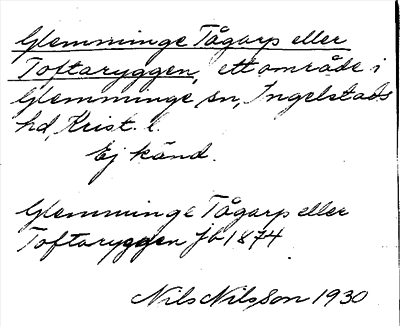 Glemminge Tågarp eller
Toftaryggen, ett område i
Glemminge sn, Ingelstads
hd, Krist. l.
Ej känd.
Glemminge Tågarp eller
Toftaryggen jb 1874
Nils Nilsson 1930